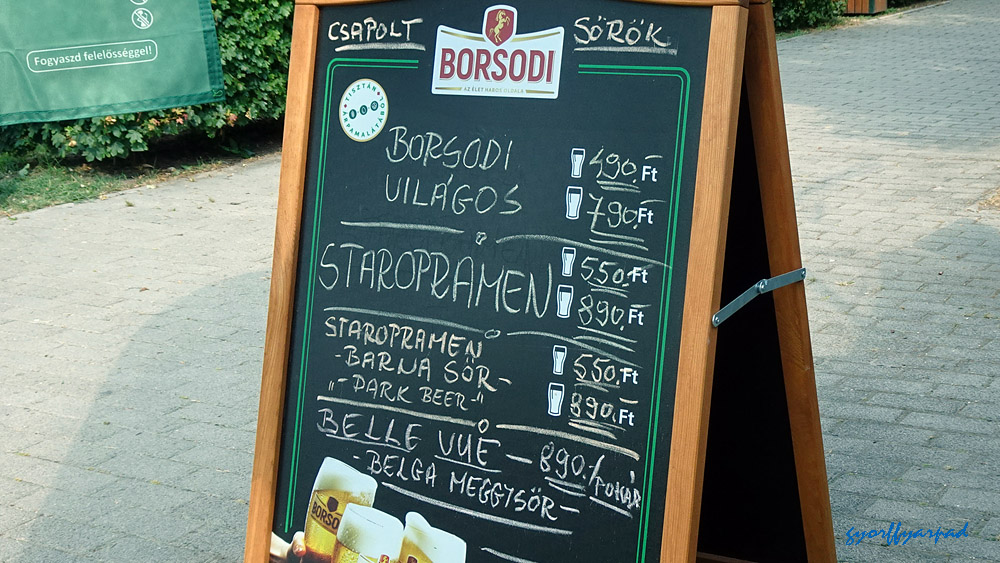 Fogyaszd felelősséggel!
CSAPOLT BORSODI SÖRÖK
AZ ÉLET HABOS OLDALA
TISZTÁN ÁRPAMALÁTÁBÓL
BORSODI 490.- Ft
VILÁGOS 790.- Ft
STAROPRAMEN 550.- Ft
890.- Ft
STAROPRAMEN
-BARNA SÖR- 550. Ft
"-DARK BEER-" 890. Ft
BELLE VUE - 890./POHÁR
-BELGA MEGGYSÖR-
BORSODI
gyorffyarpad